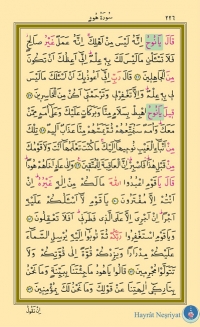 سُورَةُ هُودٍ ٢٢٦
قَالَ يَا نُوحُ اِنَّهُ لَيْسَ مِنْ اَهْلِكَ اِنَّهُ عَمَلٌ غَيْرُ صَالِحٍ
فَلَا تَسْـَٔلْنِ مَا لَيْسَ لَكَ بِهِ عِلْمٌ اِنِّي اَعِظُكَ اَنْ تَكُونَ
مِنَ الْجَاهِلِينَ قَالَ رَبِّ اِنِّي اَعُوذُ بِكَ اَنْ اَسْـَٔلَكَ مَا لَيْسَ
لِي بِهِ عِلْمٌ وَاِلَّا تَغْفِرْ لِي وَتَرْحَمْنِي اَكُنْ مِنَ الْخَاسِرِينَ
قِيلَ يَا نُوحُ اهْبِطْ بِسَلَامٍ مِنَّا وَبَرَكَاتٍ عَلَيْكَ وَعَلَى اُمَمٍ مِمَّنْ
مَعَكَ وَاُمَمٌ سَنُمَتِّعُهُمْ ثُمَّ يَمَسُّهُمْ مِنَّا عَذَابٌ اَلِيمٌ تِلْكَ
مِنْ اَنْبَاءِ الْغَيْبِ نُوحِيهَا اِلَيْكَ مَا كُنْتَ تَعْلَمُهَا اَنْتَ وَلَا قَوْمُكَ
مِنْ قَبْلِ هَذَا فَاصْبِرْ اِنَّ الْعَاقِبَةَ لِلْمُتَّقِينَ وَاِلَى عَادٍ اَخَاهُمْ هُودًا
قَالَ يَا قَوْمِ اعْبُدُوا اللهَ مَا لَكُمْ مِنْ اِلَهٍ غَيْرُهُ اِنْ
اَنْتُمْ اِلَّا مُفْتَرُونَ يَا قَوْمِ لَا اَسْـَٔلُكُمْ عَلَيْهِ
اَجْرًا اِنْ اَجْرِيَ اِلَّا عَلَى الَّذِي فَطَرَنِي اَفَلَا تَعْقِلُونَ
وَيَا قَوْمِ اسْتَغْفِرُوا رَبَّكُمْ ثُمَّ تُوبُوا اِلَيْهِ يُرْسِلِ السَّمَاءَ
عَلَيْكُمْ مِدْرَارًا وَيَزِدْكُمْ قُوَّةً اِلَى قُوَّتِكُمْ وَلَا
تَتَوَلَّوْا مُجْرِمِينَ قَالُوا يَا هُودُ مَا جِئْتَنَا بِبَيِّنَةٍ وَمَا نَحْنُ
بِتَارِكِي اٰلِهَتِنَا عَنْ قَوْلِكَ وَمَا نَحْنُ لَكَ بِمُؤْمِنِينَ
اِنْ نَقُولُ
Hayrât Neşriyat